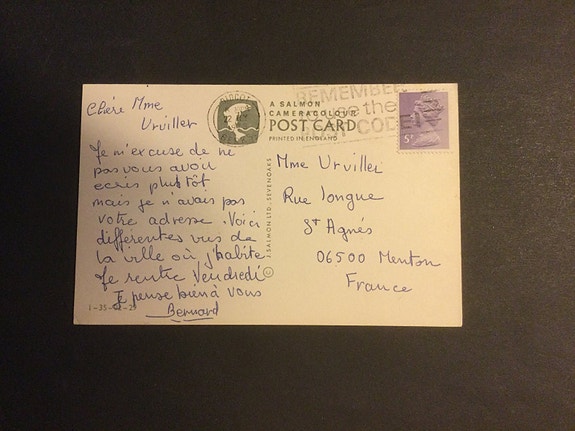 Chère Mme
Urviller
Je m'excuse de ne
pas vous avoir
ecris plutôt
mais je n'avais pas
votre adresse. Voici
différentes vues de
la ville où j'habite
Je rentre Vendredi
Je pense bien à vous
Bernard
A SALMON
CAMERACOLOUR
POST CARD
PRINTED IN ENGLAND
© J. SALMON LTD., SEVENOAKS
REMEMBER
use the
POST CODE
5P
Mme Urviller
Rue longue
St Agnés
06500 Menton
France